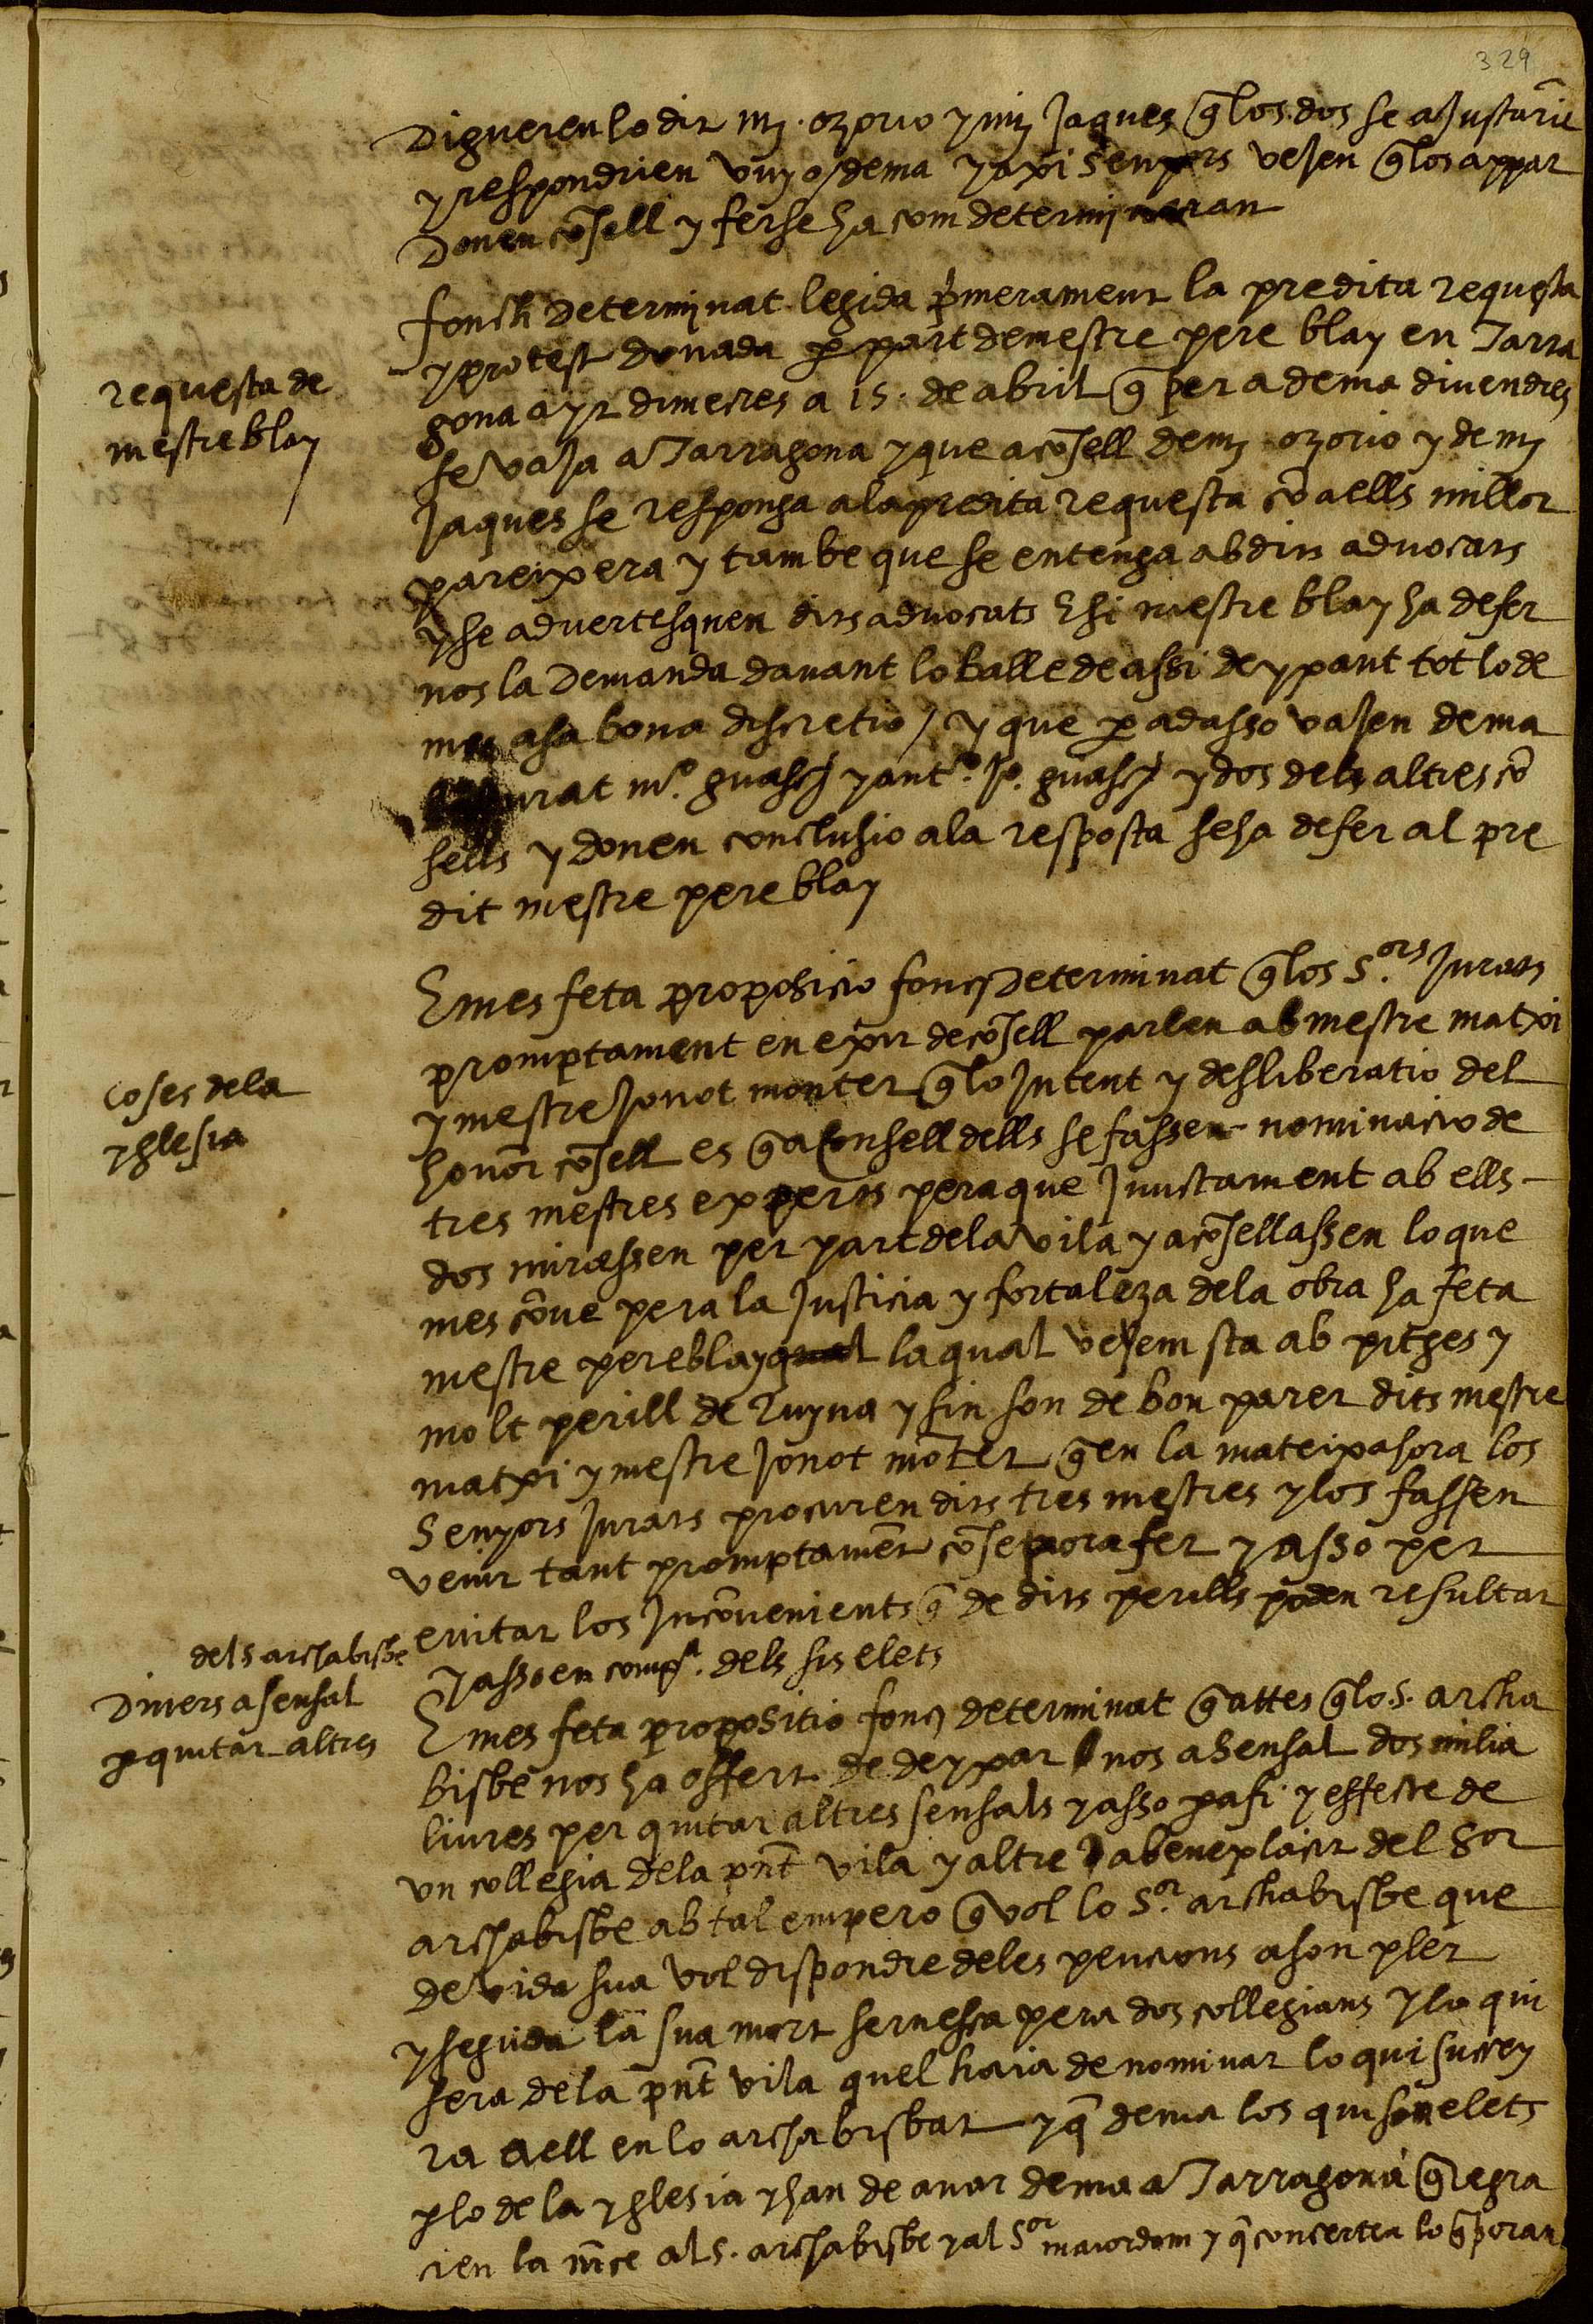 329
digueren lo dit mº. ozorio y mº Jaques q̃ los dos se aJustariē
y respondrien vuy o dema y axi senyors veJen q̃ los appar
donen cõsell y ferse ha com determinaran
requesta de
mestre blay
fonch determinat legida pͥmerament la predita requesta
y protest donada ꝑ part de mestre pere blay en Tarra
gona ayr dimecres a 15. de abril q̃ per a dema divendres
se vaJa a Tarragona y que a cõsell de mº ozorio y de mº
Jaques se responga a la predita requesta cõ a ells millor
pareixera y tambe que se entenga ab dits advocats
y se advertesquen dits advocats E si mestre blay ha de fer
nos la demanda davant lo balle de assi deyxant tot lo de
mes a sa bona discretio / y que ꝑ ad asso vaJen dema
Jurat mº. guasch y antº. Jº. guasch y dos dels altres cõ
sells y donen conclusio a la resposta se ha de fer al pre
dit mestre pere blay
coses de la
yglesia
E mes feta proposicio fonch determinat q̃ los S.ors Jurats
promptament en exir de cõsell parlen ab mestre matxi
y mestre Jonot monter q̃ lo Intent y desliberatio del
honor cõsell es q̃ a Consell dells se fassen nominacio de
tres mestres experts pera que Junctament ab ells
dos mirassen per part de la vila y acõsellassen lo que
mes cõve pera la Justicia y fortaleza de la obra ha feta
mestre pere blay qual la qual veJem sta ab pitges y
molt perill de Ruyna y sin son de bon parer dits mestre
matxi y mestre Jonot mõter q̃ en la mateixa hora los
Senyors Jurats procuren dits tres mestres y los fassen
venir tant promptamēt cõ se pora fer y asso per
evitar los Incõvenients q̃ de dits perills poden resultar
y asso en compª. dels sis elets
dels archabisbe
diners a sensal
ꝑ quitar altres
E mes feta propositio fonch determinat q̃ attes q̃ lo S. archa
bisbe nos ha offert de deyxar nos a Sensal dos milia
liures per quitar altres sensals y asso ꝑ a fi y effecte de
un collegia de la pñt vila y altre a beneplacit del Sor
archabisbe ab tal empero q̃ vol lo S.or archabisbe que
de vida sua vol dispondre de les pencions a son pler
y seguida la sua mort servesca pera dos collegians y lo qui
sera de la pñt vila quel haia de nominar lo qui succey
ra a ell en lo archabisbat y q̃ dema los qui son elets
ꝑ lo de la yglesia y han de anar dema a Tarragona q̃ regra
cien la m̃ce al S. archabisbe y al Sor maiordom y q̃ concerten lo q̃ poran